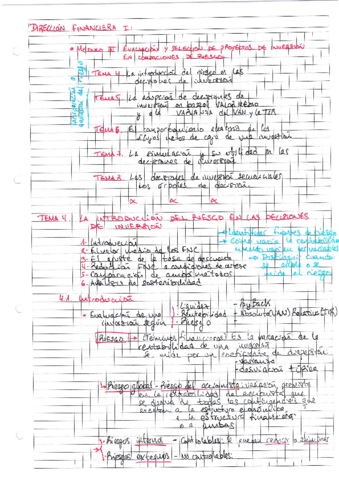 DIRECCIÓN FINANCIERA I:
• MÓDULO II: EVALUACIÓN Y SELECCIÓN DE PROYECTOS DE INVERSIÓN
EN CONDICIONES DE RIESGO
TEMA 4. La introducción del riesgo en las
decisiones de inversión
TEMA 5. La adopción de decisiones de
inversión en base al VALOR MEDIO
y a la VARIANZA del VAN y la TIR
TEMA 6. El comportamiento aleatorio de los
flujos netos de caja de una inversión
TEMA 7. La simulación y su utilidad en las
decisiones de inversión
TEMA 8. Las decisiones de inversión secuenciales
Los árboles de decisión.
TEMA 4. LA INTRODUCCIÓN DEL RIESGO EN LAS DECISIONES
DE INVERSIÓN
• Identificar fuentes de riesgo
• Cómo varía la rentabilidad
1. Introducción
2. El valor medio de los FNC
3. El ajuste de la tasa de descuento
4. Reducción FNC a condiciones de certeza
5. Comparación de ambos métodos
6. Análisis de sostenibilidad
4.1. Introducción
• Evaluación de una inversión según
Liquidez - PayBack
Rentabilidad - Absoluta (VAN) Relativa (TIR)
Riesgo
RIESGO - Términos financieros es la variación de la
rentabilidad de una inversión
Se mide por un coeficiente de dispersión
- varianza
- desviación típica
- Riesgo global - Riesgo del accionista: variación
en la rentabilidad del accionista que
se deriva de todas las contingencias que
afectan a la estructura económica
o la estructura financiera
o a ambas
- Riesgos internos - Controlables: se pueden reducir o eliminar
- Riesgos externos - No controlables: